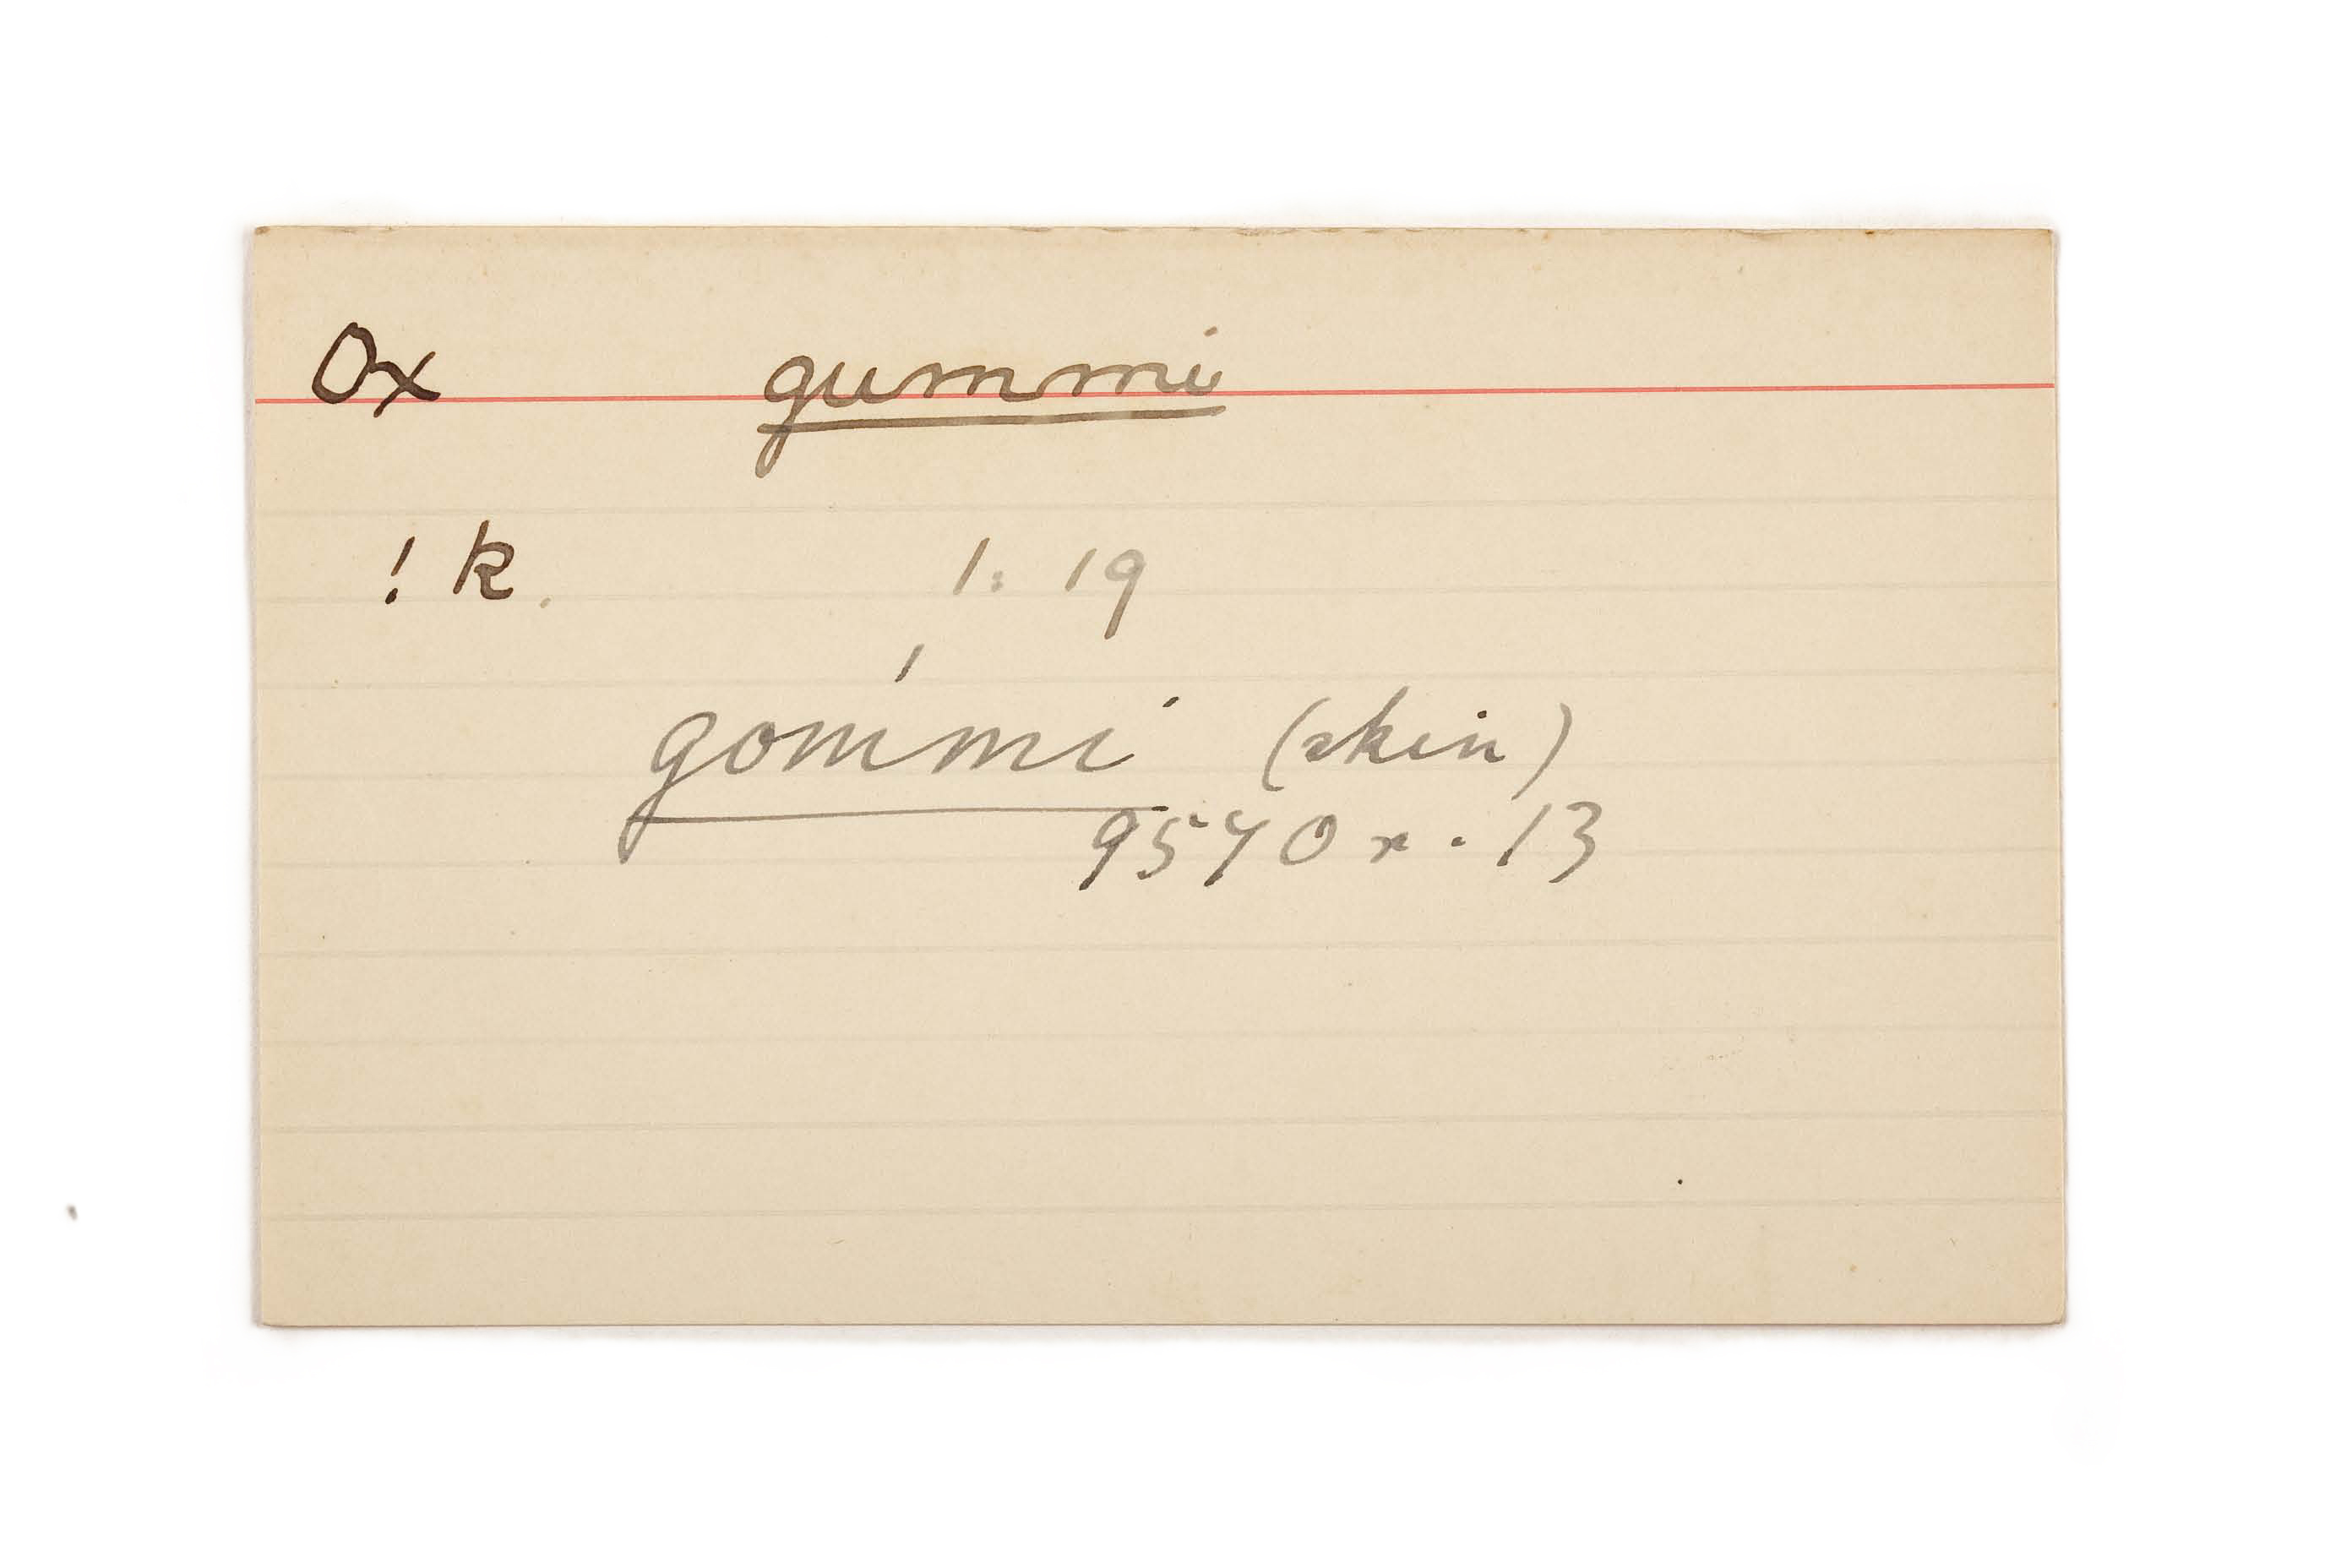 Ox gummi
! k. 1: 19
gommi (skin)
9540x. 13